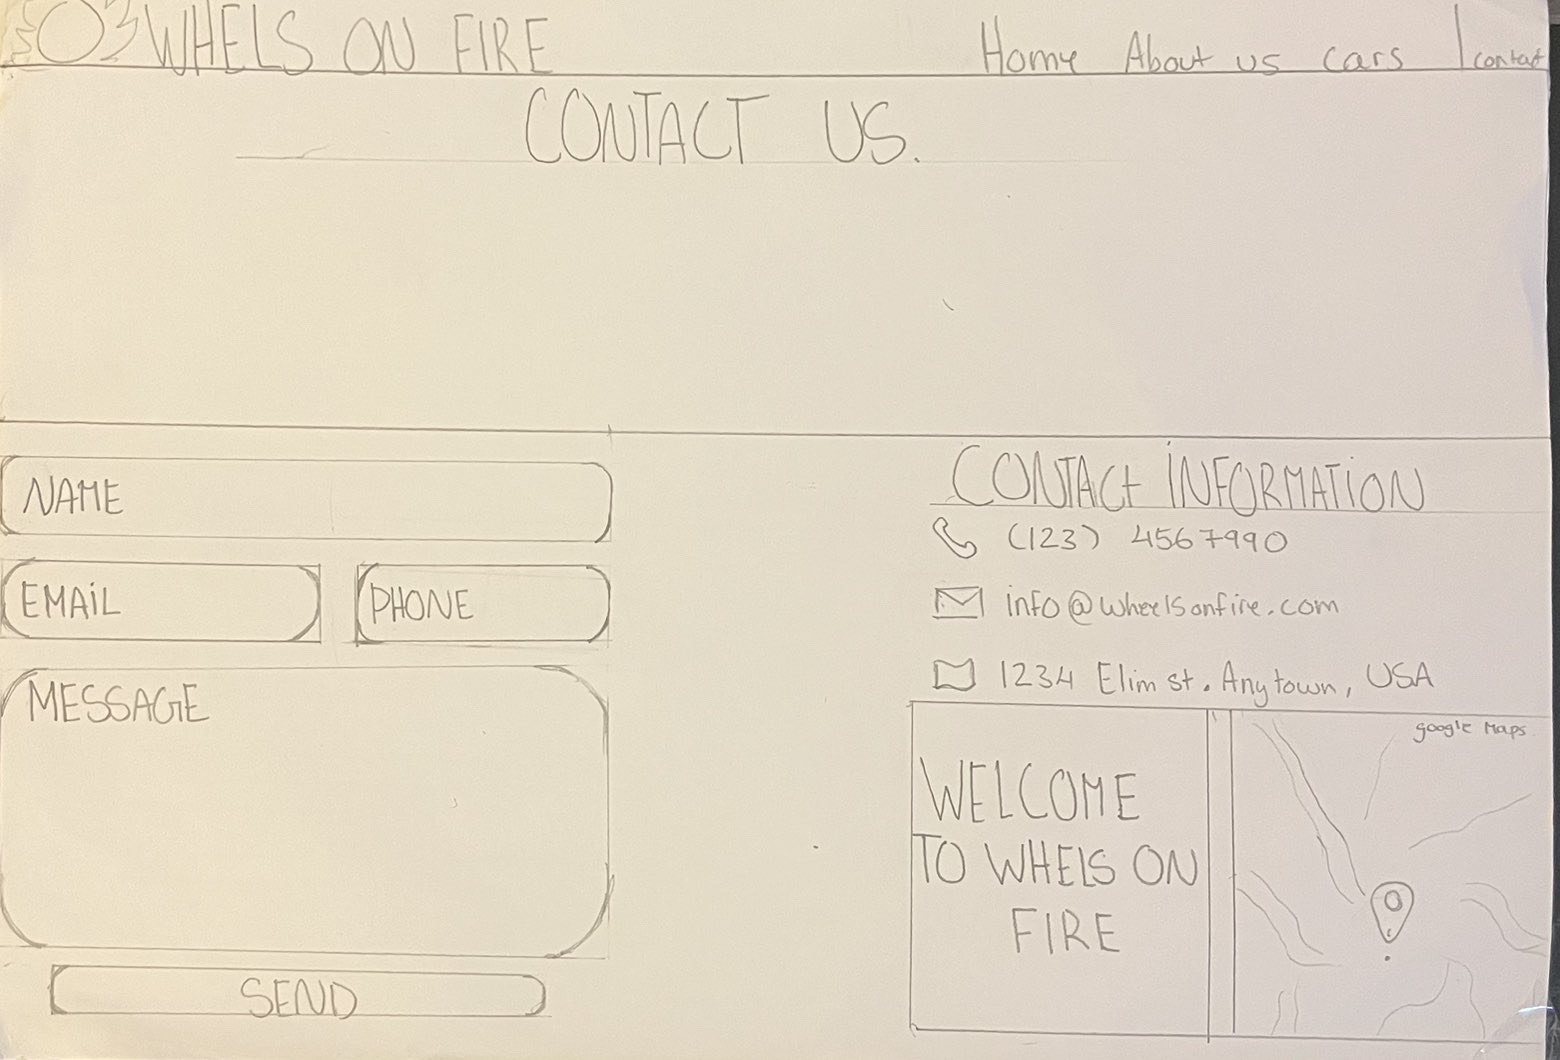 WHELS ON FIRE
Home About us cars contact
CONTACT US.
NAME
EMAIL
PHONE
MESSAGE
SEND
CONTACT INFORMATION
(123) 4567990
info@wheelsonfire.com
1234 Elim st. Anytown, USA
WELCOME
TO WHELS ON
FIRE
google Maps